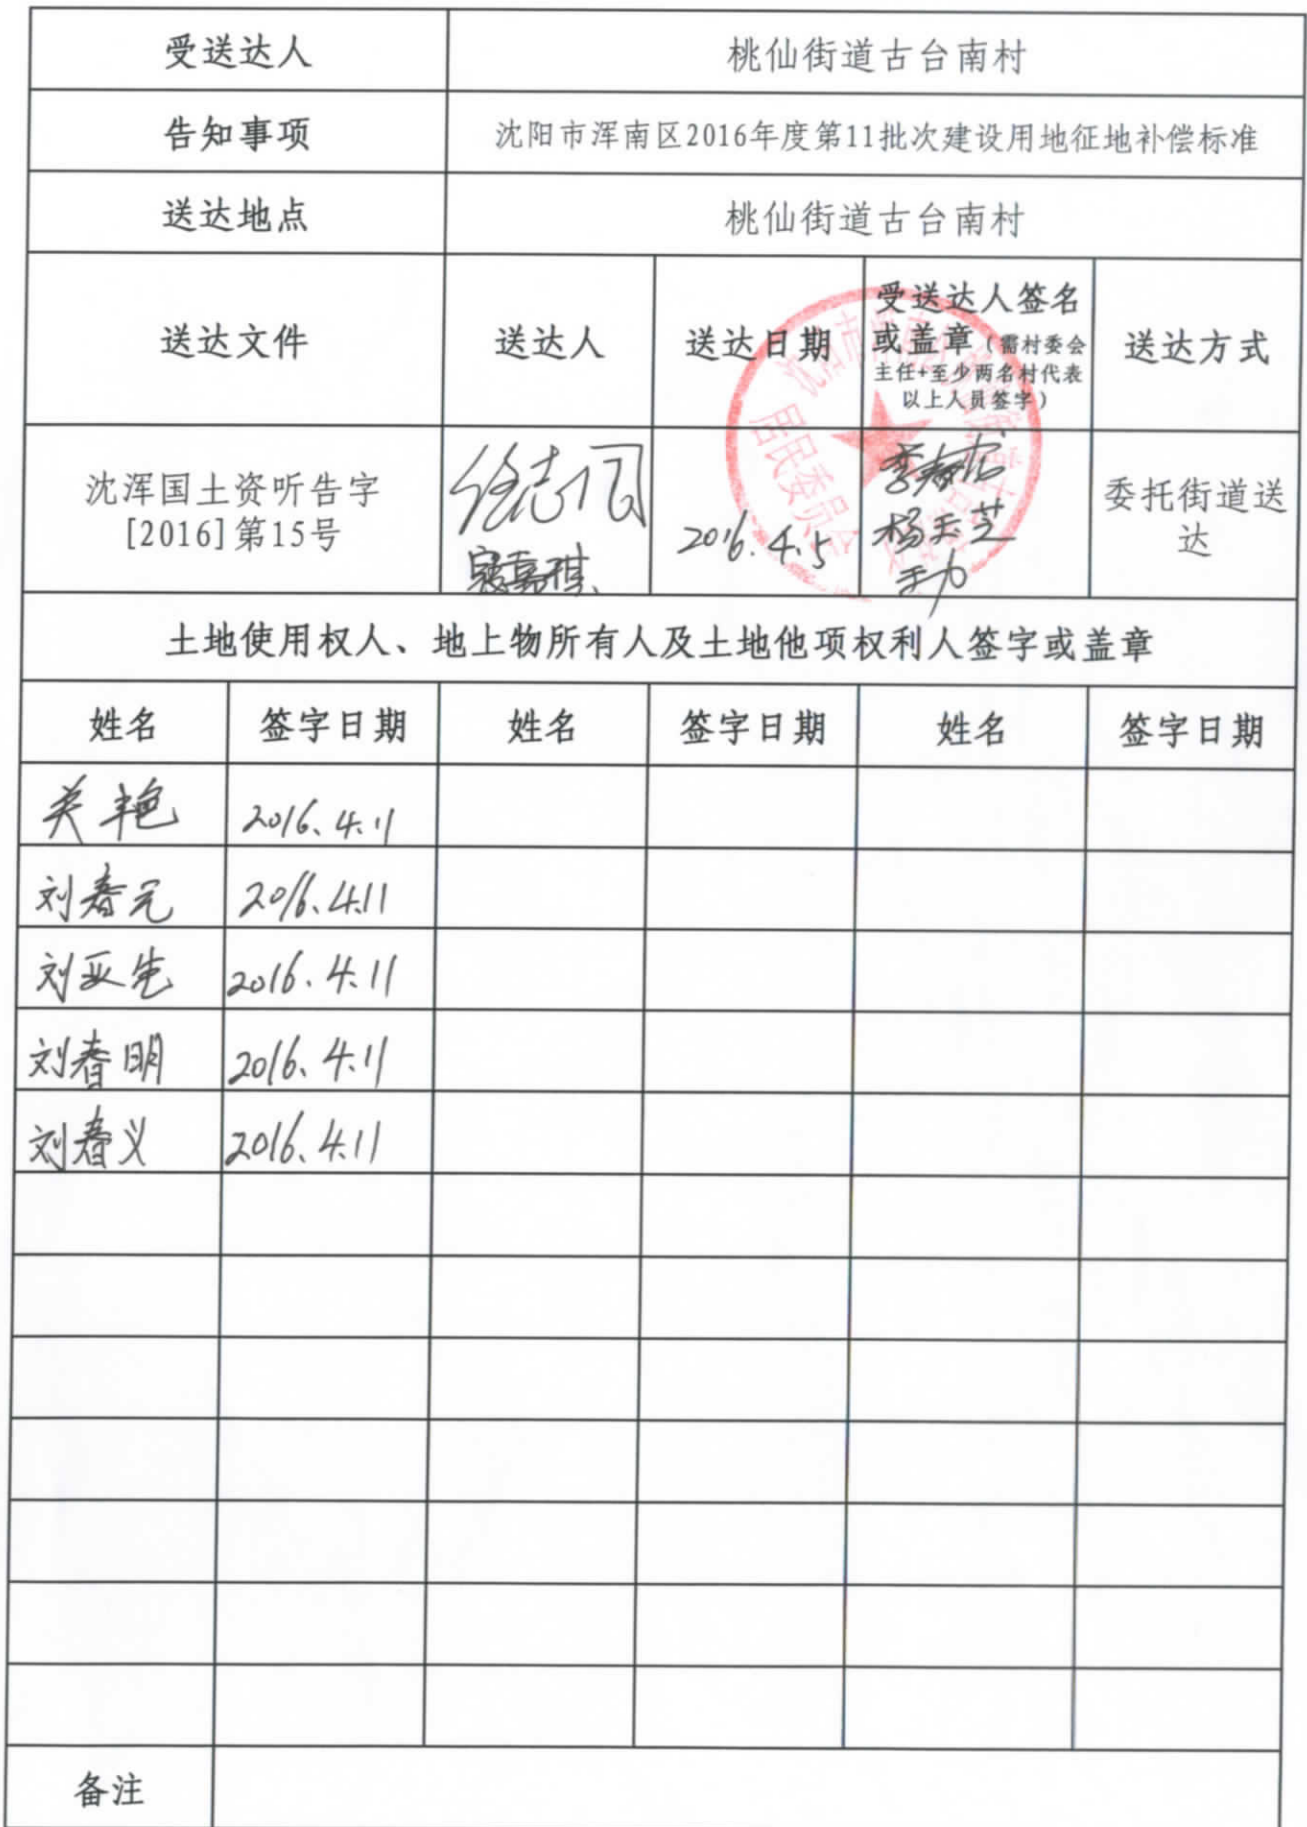 受送达人
桃仙街道古台南村
告知事项
沈阳市浑南区2016年度第11批次建设用地征地补偿标准
送达地点
桃仙街道古台南村
送达文件
送达人
送达日期
受送达人签名
或盖章（需村委会
主任+至少两名村代表
以上人员签字）
送达方式
沈浑国土资听告字
[2016]第15号
2016.4.5
杨天芝
王力
居民委员会
委托街道送
达
土地使用权人、地上物所有人及土地他项权利人签字或盖章
姓名 签字日期 姓名 签字日期 姓名 签字日期
关艳 2016.4.11
刘春元 2016.4.11
刘亚先 2016.4.11
刘春明 2016.4.11
刘春义 2016.4.11
备注